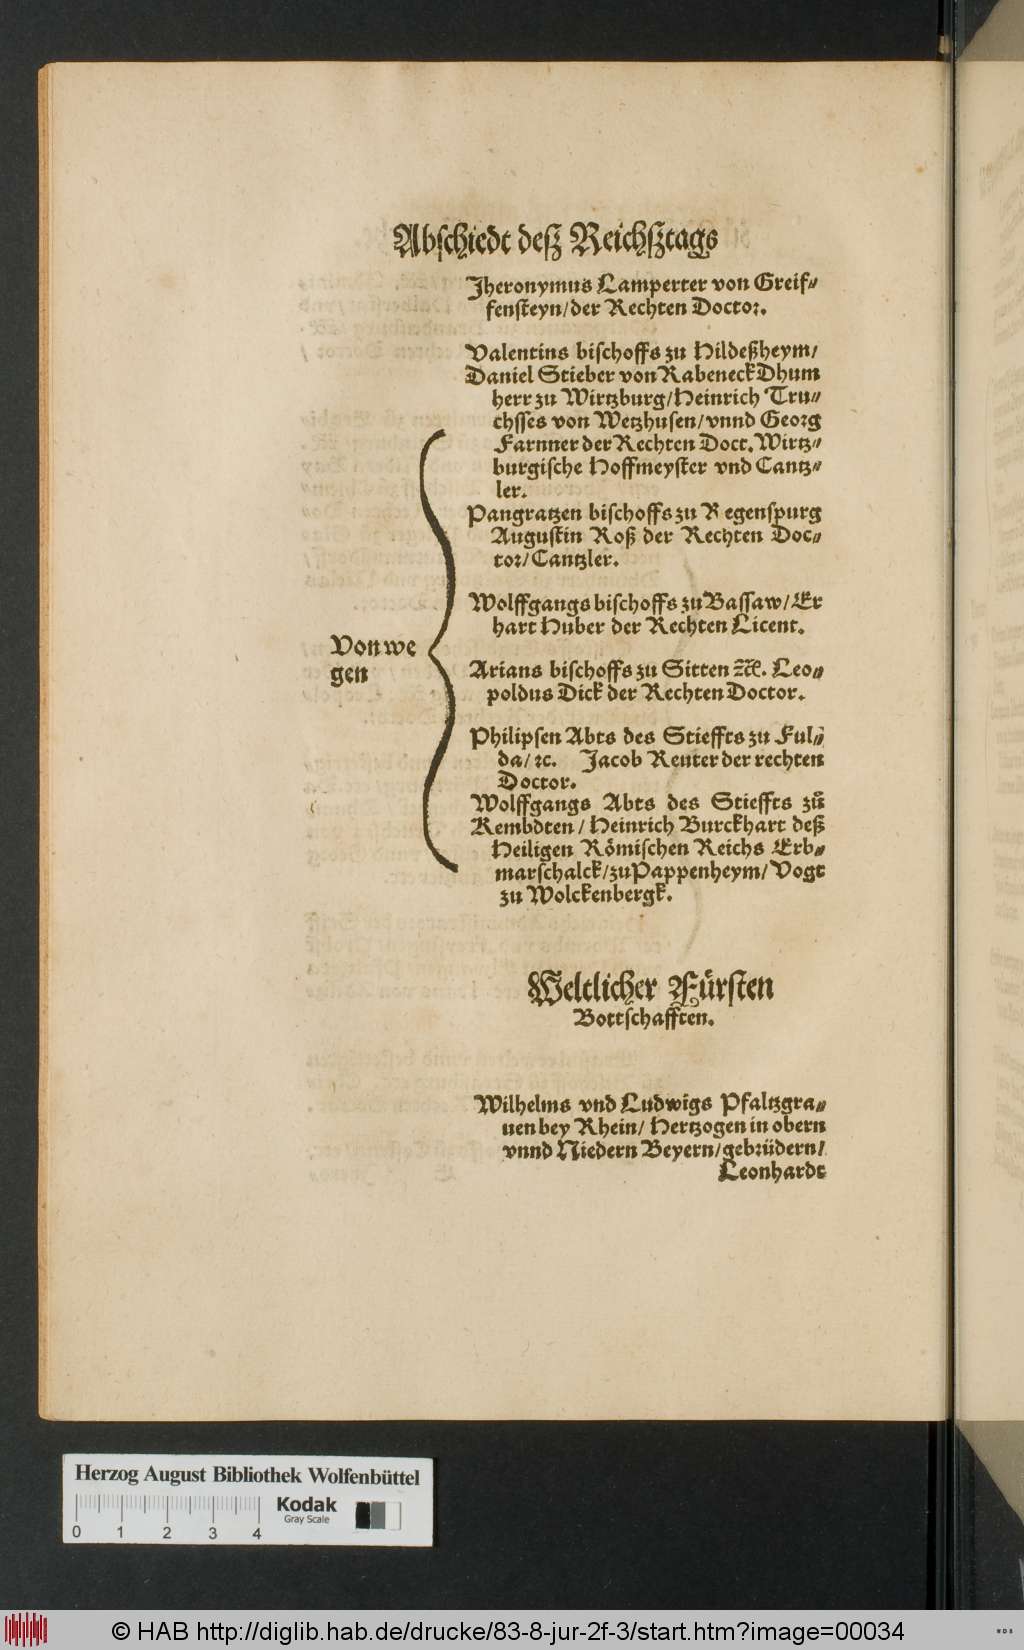 Abschiedt deß Reichßtags
Jheronymus Lamperter von Greif⸗
fensteyn/der Rechten Doctor.
Valentins bischoffs zu Hildeßheym/
Daniel Stieber von Rabeneck Dhum
herr zu Wirtzburg/Heinrich Tru⸗
chsses von Wetzhusen/vnnd Georg
Farnner der Rechten Doct. Wirtz⸗
burgische Hoffmeyster vnd Cantz⸗
ler.
Pangratzen bischoffs zu Regenspurg
Augustin Roß der Rechten Doc⸗
tor/Cantzler.
Wolffgangs bischoffs zu Bassaw/Er
hart Huber der Rechten Licent.
Von we
gen
Arians bischoffs zu Sitten ꝛc. Leo⸗
poldus Dick der Rechten Doctor.
Philipsen Abts des Stieffts zu Ful⸗
da/ꝛc. Jacob Reuter der rechten
Doctor.
Wolffgangs Abts des Stieffts zů
Kembdten/Heinrich Burckhart deß
Heiligen Römischen Reichs Erb⸗
marschalck/zu Pappenheym/Vogt
zu Wolckenbergk.
Weltlicher Fürsten
Bottschafften.
Wilhelms vnd Ludwigs Pfaltzgra⸗
uen bey Rhein/Hertzogen in obern
vnnd Niedern Beyern/gebrüdern/
Leonhardt
Herzog August Bibliothek Wolfenbüttel
Kodak
Gray Scale
0 1 2 3 4
© HAB http://diglib.hab.de/drucke/83-8-jur-2f-3/start.htm?image=00034